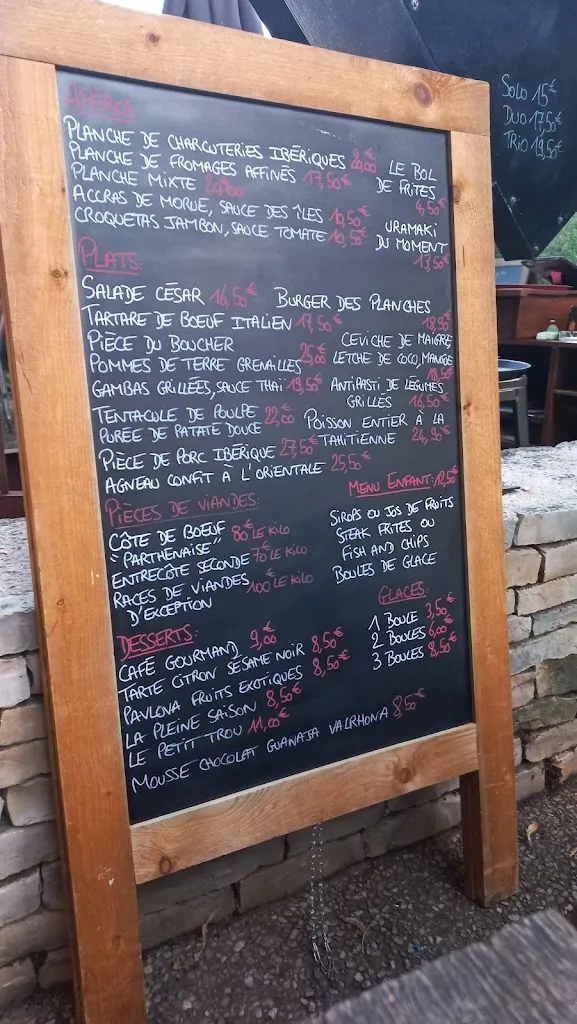 APÉROS:
PLANCHE DE CHARCUTERIES IBÉRIQUES 20,00€
PLANCHE DE FROMAGES AFFINÉS 17,50€
PLANCHE MIXTE
ACCRAS DE MORUE, SAUCE DES ÎLES 10,50€
CROQUETAS JAMBON, SAUCE TOMATE 10,50€
LE BOL
DE FRITES
4,50€
URAMAKI
DU MOMENT
13,50€
PLATS:
SALADE CÉSAR 16,50€
TARTARE DE BOEUF ITALIEN 17,50€
PIÈCE DU BOUCHER
POMMES DE TERRE GRENAILLES 25,00€
GAMBAS GRILLÉES, SAUCE THAÏ 19,50€
TENTACULE DE POULPE 22,00€
PURÉE DE PATATE DOUCE
PIÈCE DE PORC IBÉRIQUE 27,50€
AGNEAU CONFIT À L'ORIENTALE 25,50€
BURGER DES PLANCHES
18,50€
CEVICHE DE MAIGRE
LETCHE DE COCO, MANGUE
18,50€
ANTIPASTI DE LÉGUMES
GRILLÉS 16,50€
POISSON ENTIER À LA
TAHITIENNE 24,90€
PIÈCES DE VIANDES:
CÔTE DE BOEUF 80€ LE KILO
"PARTHENAISE"
ENTRECÔTE SECONDE 70€ LE KILO
RACES DE VIANDES 100€ LE KILO
D'EXCEPTION
MENU ENFANT: 12,50€
SIROPS OU JUS DE FRUITS
STEAK FRITES OU
FISH AND CHIPS
BOULES DE GLACE
DESSERTS:
CAFÉ GOURMAND 9,00€
TARTE CITRON SÉSAME NOIR 8,50€
PAVLOVA FRUITS EXOTIQUES 8,50€
LA PLEINE SAISON 8,50€
LE PETIT TROU 11,00€
MOUSSE CHOCOLAT GUANAJA VALRHONA 8,50€
GLACES:
1 BOULE 3,50€
2 BOULES 6,00€
3 BOULES 8,50€
SOLO 15€
DUO 17,50€
TRIO 19,50€